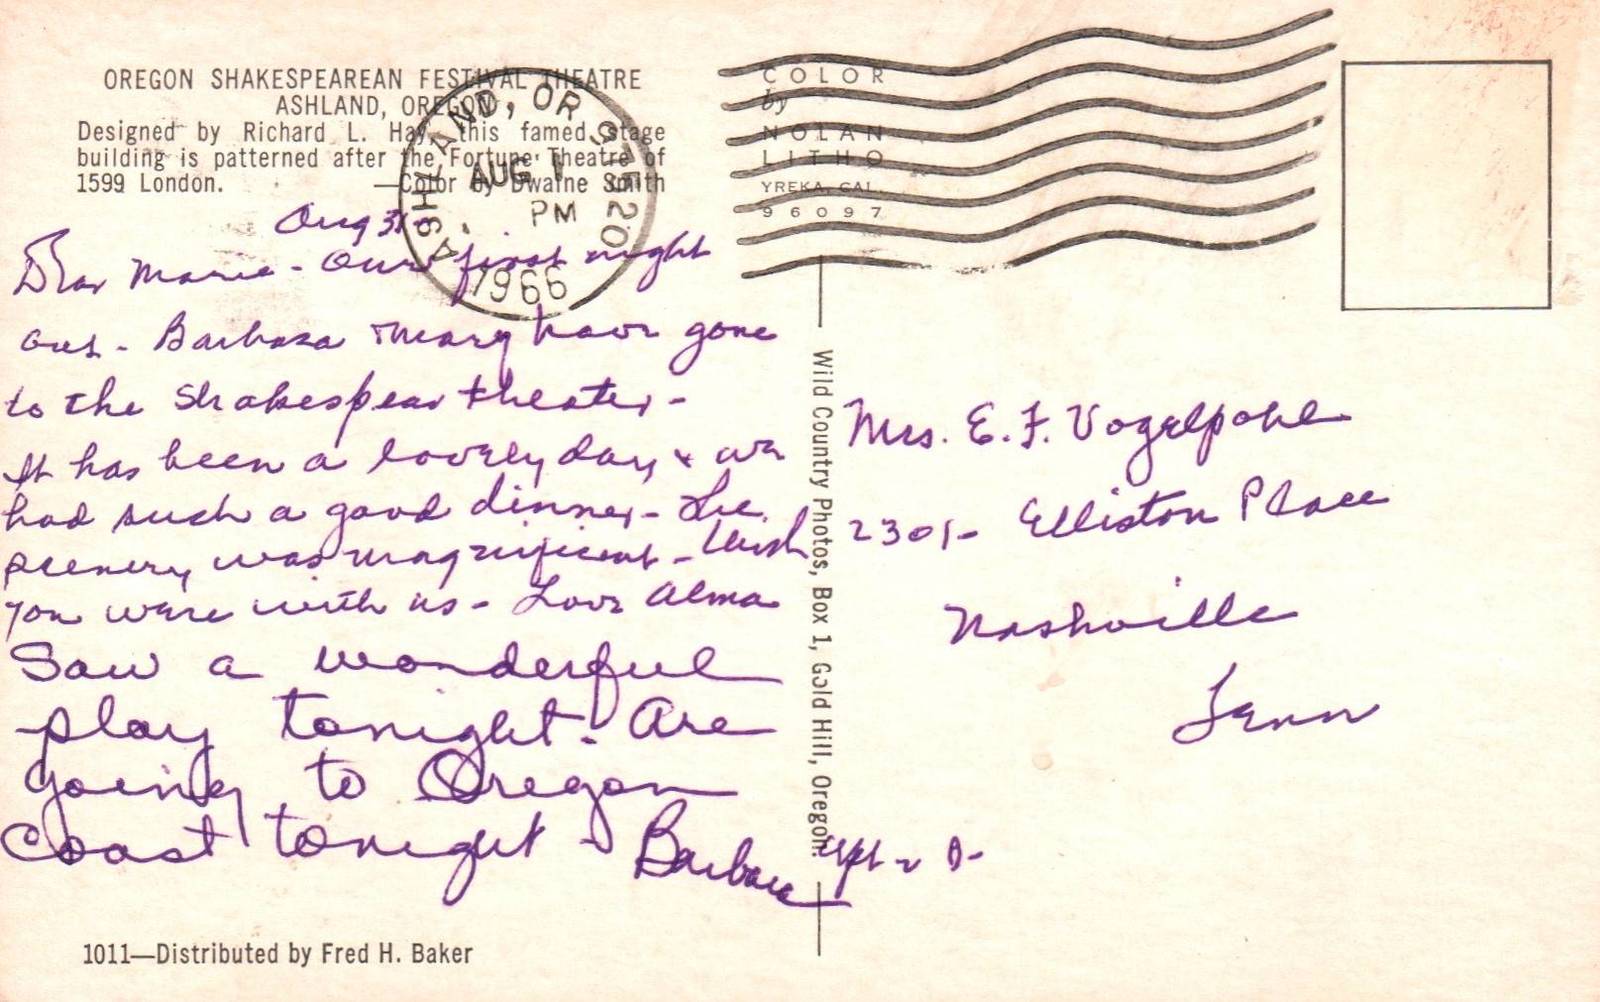 OREGON SHAKESPEAREAN FESTIVAL THEATRE
ASHLAND, OREGON
Designed by Richard L. Hay, this famed stage
building is patterned after the Fortune Theatre of
1599 London. —Color by Dwaine Smith
ASHLAND, OR 97520
AUG 1
PM
1966
COLOR
by
NOLAN
LITHO
YREKA, CAL.
96097
Aug 31
Dear Marie - Our first night
out - Barbara & Mary have gone
to the Shakespear theater -
It has been a lovely day & we
had such a good dinner - The
scenery was magnificent - Wish
you were with us - Love Alma
Saw a wonderful
play tonight. Are
going to Oregon
Coast tonight - Barbara
Wild Country Photos, Box 1, Gold Hill, Oregon.
Mrs. E. F. Vogelpohl
2301 - Elliston Place
Nashville
Tenn
1011—Distributed by Fred H. Baker